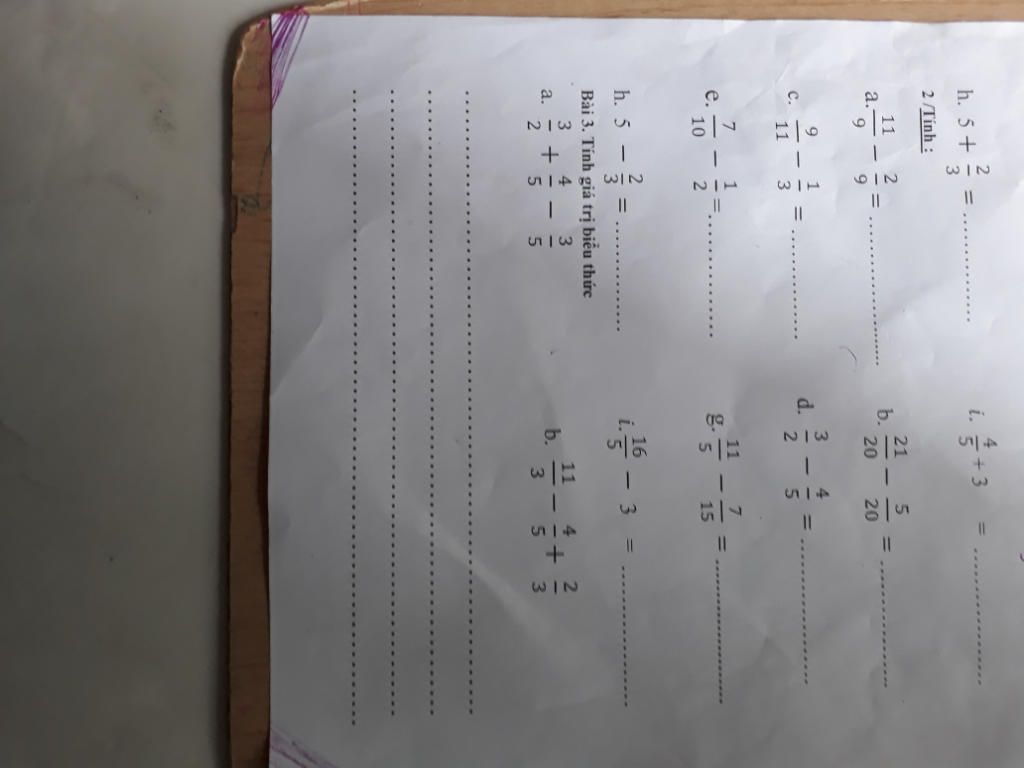 h. 5 + 2/3 = ............... i. 4/5 + 3 = ...............
2 /Tính :
a. 11/9 − 2/9 = ............... b. 21/20 − 5/20 = ...............
c. 9/11 − 1/3 = ............... d. 3/2 − 4/5 = ...............
e. 7/10 − 1/2 = ............... g. 11/5 − 7/15 = ...............
h. 5 − 2/3 = ............... i. 16/5 − 3 = ...............
Bài 3. Tính giá trị biểu thức
a. 3/2 + 4/5 − 3/5 b. 11/3 − 4/5 + 2/3